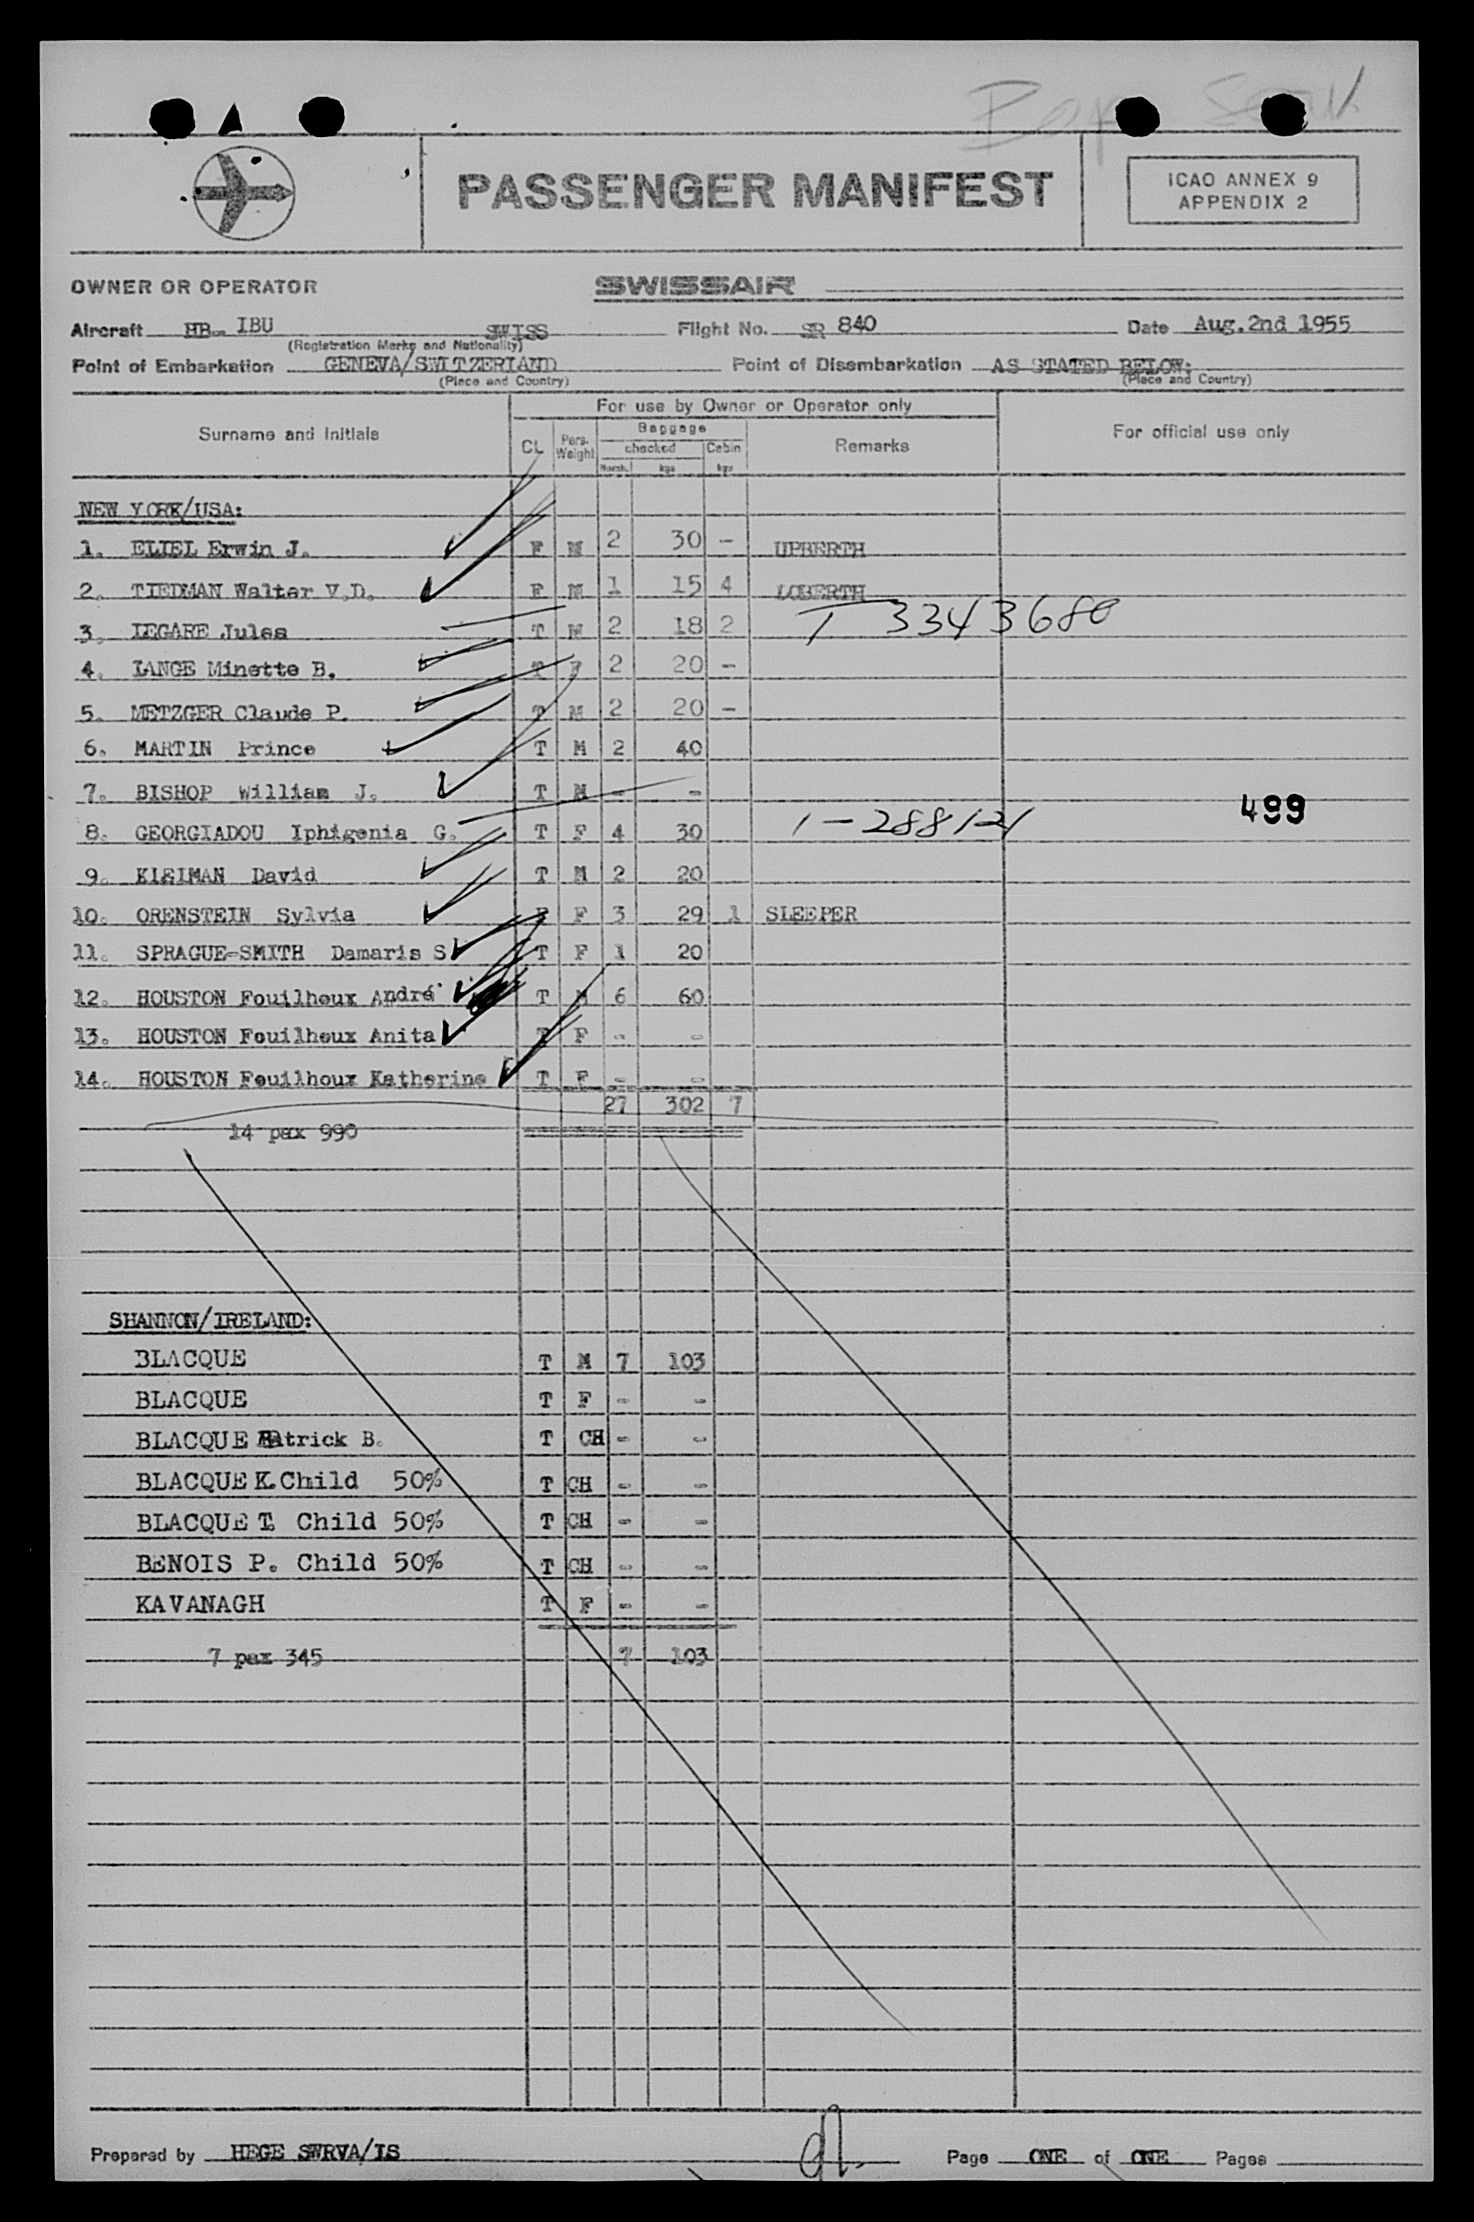 PASSENGER MANIFEST
ICAO ANNEX 9
APPENDIX 2
OWNER OR OPERATOR SWISSAIR
Aircraft HB- IBU SWISS Flight No. SR 840 Date Aug. 2nd 1955
(Registration Marks and Nationality)
Point of Embarkation GENEVA/SWITZERLAND Point of Disembarkation AS STATED BELOW:
(Place and Country) (Place and Country)
For use by Owner or Operator only
Surname and Initials CL Pers. Weight Baggage checked Cabin Remarks For official use only
Numb. kgs kgs
NEW YORK/USA:
1. ELIEL Erwin J. F M 2 30 - UPBERTH
2. TIEDMAN Walter V.D. F M 1 15 4 LOBERTH
3. LEGARE Jules T M 2 18 2 T 3343680
4. LANGE Minette B. T F 2 20 -
5. METZGER Claude P. T M 2 20 -
6. MARTIN Prince T M 2 40
7. BISHOP William J. T M - -
499
8. GEORGIADOU Iphigenia G. T F 4 30 1-288121
9. KLEIMAN David T M 2 20
10. ORENSTEIN Sylvia F F 3 29 1 SLEEPER
11. SPRAGUE-SMITH Damaris S T F 1 20
12. HOUSTON Fouilhoux André T M 6 60
13. HOUSTON Fouilhoux Anita T F - -
14. HOUSTON Fouilhoux Katherine T F - -
27 302 7
14 pax 990
SHANNON/IRELAND:
BLACQUE T M 7 103
BLACQUE T F - -
BLACQUE Patrick B. T CH - -
BLACQUE K. Child 50% T CH - -
BLACQUE T. Child 50% T CH - -
BENOIS P. Child 50% T CH - -
KAVANAGH T F - -
7 pax 345 7 103
Prepared by HEGE SWRVA/IS Page ONE of ONE Pages